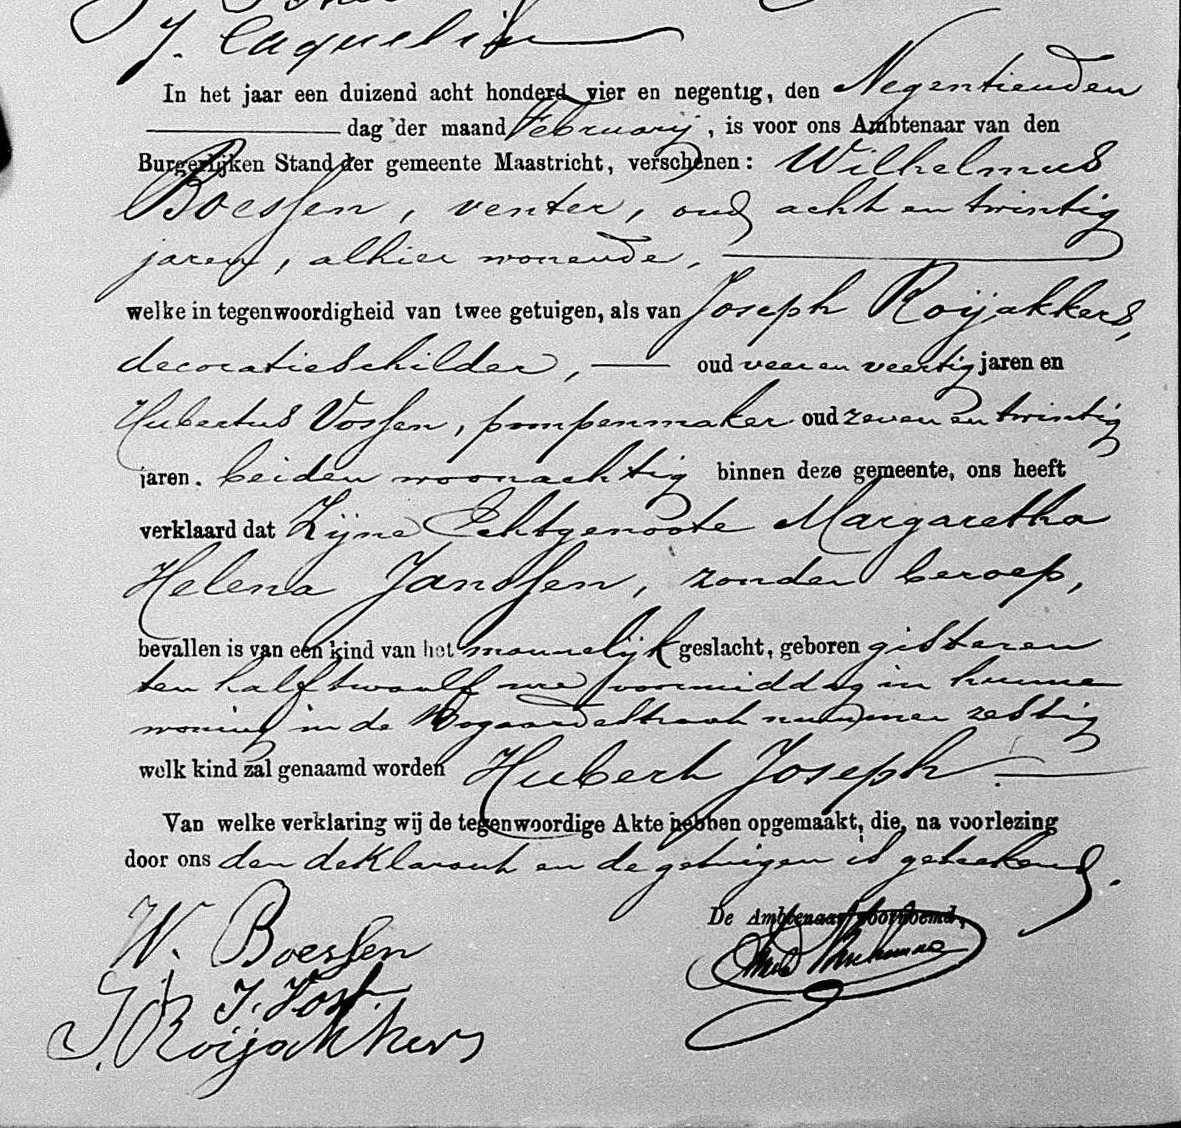 J. Caquelin
In het jaar een duizend acht honderd vier en negentig, den Negentienden
dag der maand Februarij, is voor ons Ambtenaar van den
Burgerlijken Stand der gemeente Maastricht, verschenen: Wilhelmus
Boessen, venter, oud acht en twintig
jaren, alhier wonende,
welke in tegenwoordigheid van twee getuigen, als van Joseph Roijakkers,
decoratieschilder, oud veer en veertig jaren en
Hubertus Vossen, pompenmaker oud zeven en twintig
jaren. beiden woonachtig binnen deze gemeente, ons heeft
verklaard dat Zijne Echtgenoote Margaretha
Helena Janssen, zonder beroep,
bevallen is van een kind van het mannelijk geslacht, geboren gisteren
ten half twaalf ure voormiddag in hunne
woning in de Bogaardestraat nummer zestig
welk kind zal genaamd worden Hubert Joseph
Van welke verklaring wij de tegenwoordige Akte hebben opgemaakt, die, na voorlezing
door ons den deklarant en de getuigen is geteekend.
De Ambtenaar voornoemd,
W. Boessen
J. Roijakkers